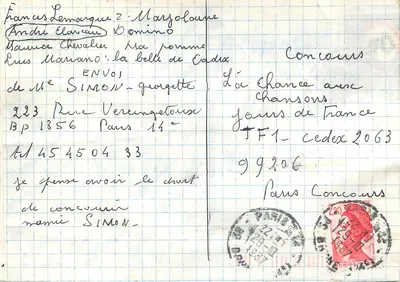 Francis Lemarque: Marjolaine
André Claveau Domino
Maurice Chevalier Ma pomme
Luis Mariano: la belle de Cadix
ENVOI
de Me SIMON - georgette
223 Rue Vercingetorix
BP 1356 Paris 14e
tel 45 45 04 33
je pense avoir le droit
de concourir
mamie SIMON -
Concours
La chance aux
chansons
jours de France
TF1 - Cedex 2063
99206
Paris Concours
PARIS